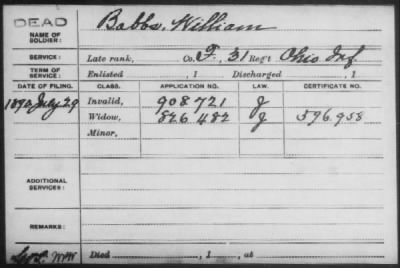 DEAD
NAME OF SOLDIER: Babbs, William
SERVICE: Late rank, Co. F, 31 Reg't Ohio Inf
TERM OF SERVICE: Enlisted , 1 Discharged , 1
DATE OF FILING. CLASS. APPLICATION NO. LAW. CERTIFICATE NO.
July 29 Invalid, 908 721 J
Widow, 826 482 J 596.958
Minor,
ADDITIONAL SERVICES:
REMARKS:
Died , 1 , at